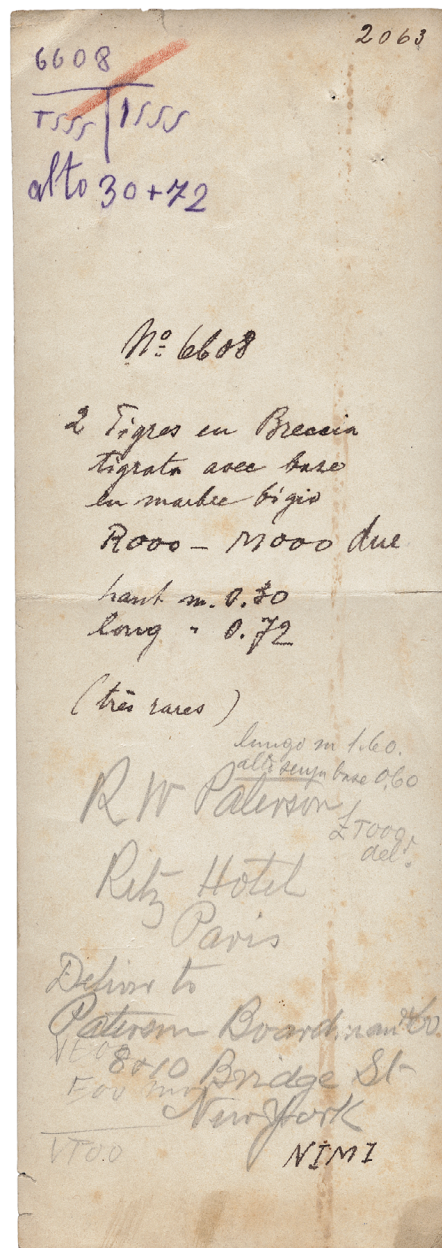 2063
6608
TSSS | 1SSS
alto 30+72
Nº 6608
2 Tigres en Breccia
tigrata avec base
en marbre bigio
Rooo - Mooo due
haut m. 0.30
long " 0.72
(très rares)
lungo m 1.60.
alti senza base 0,60
R W Paterson
£ Tooo
del.
Ritz Hotel
Paris
Deliver to
Paterson Boardman & Co.
8 & 10 Bridge St
New York
NIMI
VTOO